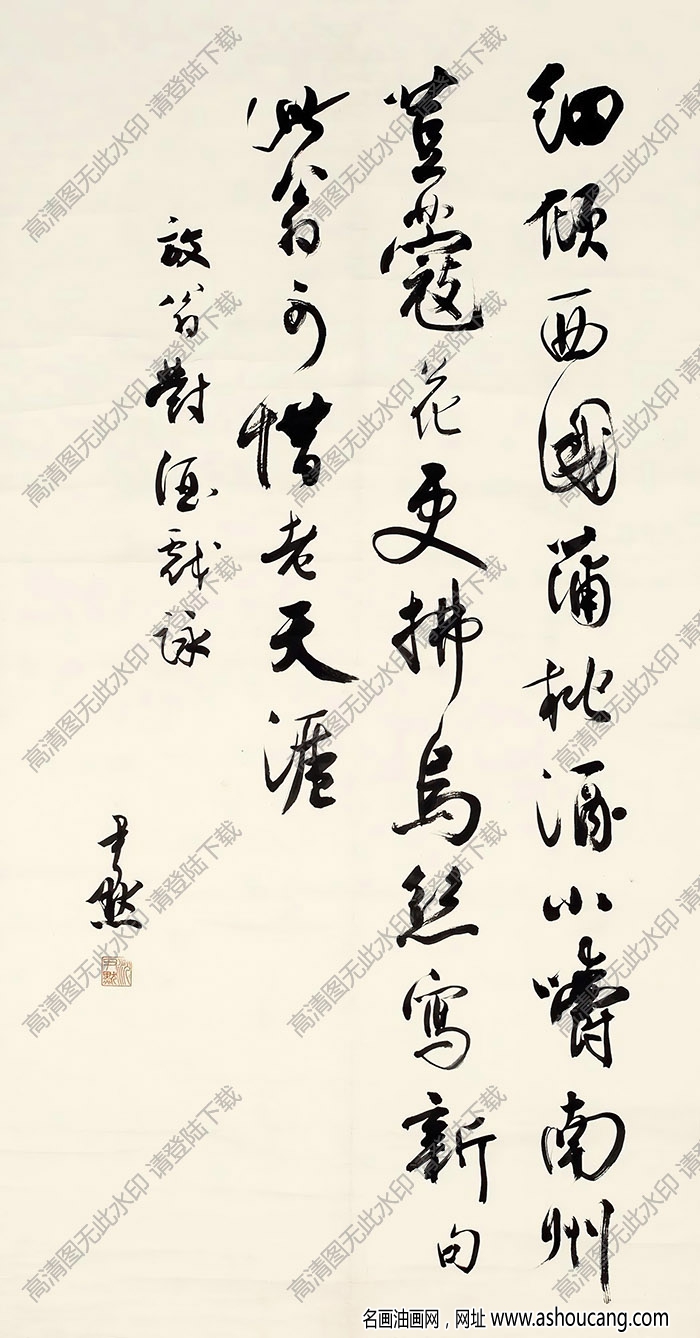 細傾西國蒲桃酒小嚼南州
荳蔻花更拂烏絲寫新句
此翁可惜老天涯
放翁對酒戲詠
尹默
沈尹默
高清图无此水印 请登陆下载
名画油画网，网址 www.ashoucang.com